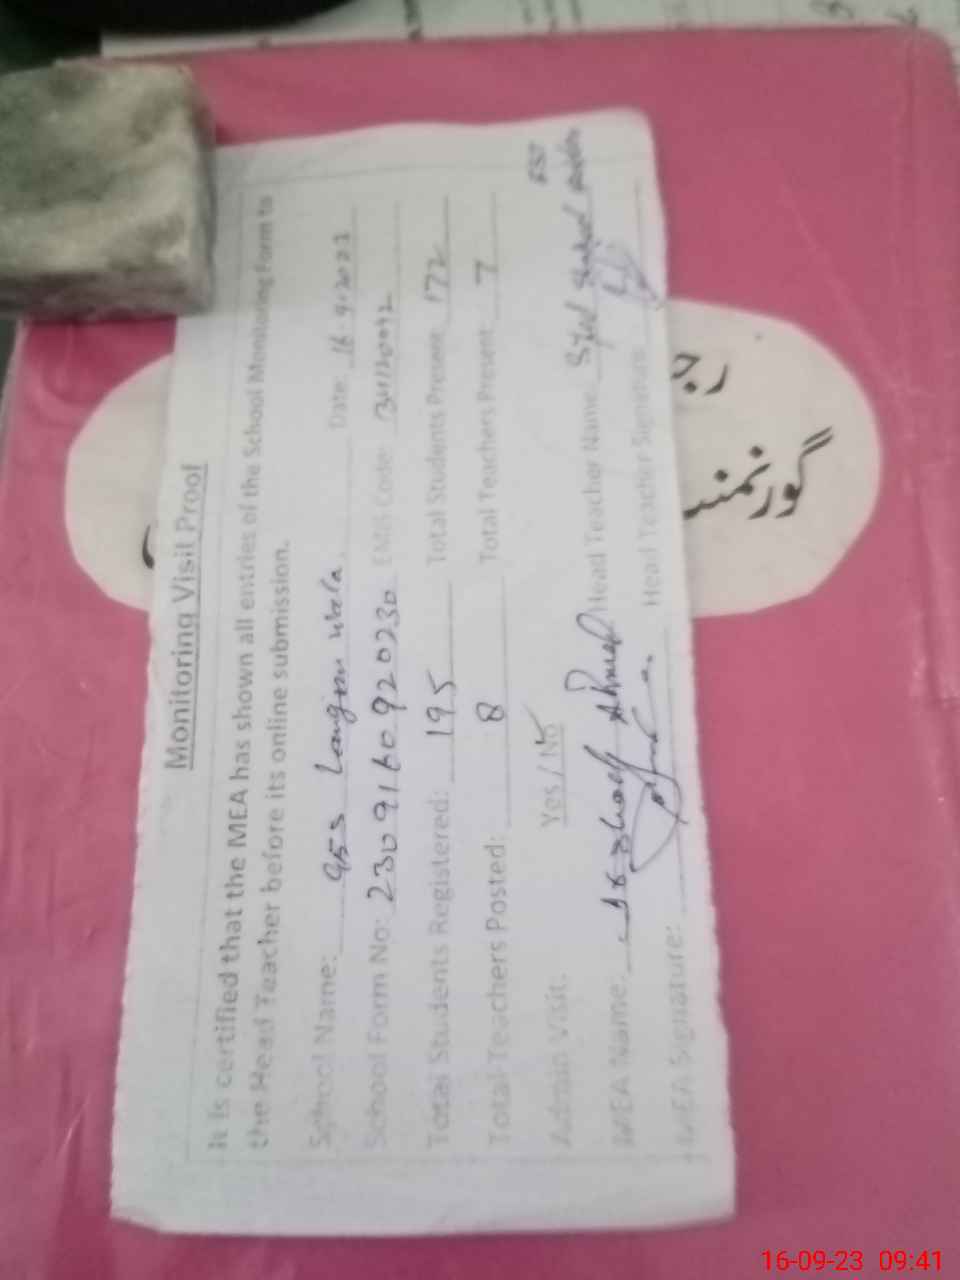 Monitoring Visit Proof
It is certified that the MEA has shown all entries of the School Monitoring Form to
the Head Teacher before its online submission.
School Name: Date: 16-9-2023
School Form No: 2309160920230 EMIS Code:
Total Students Registered: 195 Total Students Present 172
Total Teachers Posted: 8 Total Teachers Present 7
Admin Visit: Yes / No EST
MEA Name: Ahmed Head Teacher Name Syed
MEA Signature: Head Teacher Signature
گورنمنٹ
16-09-23 09:41